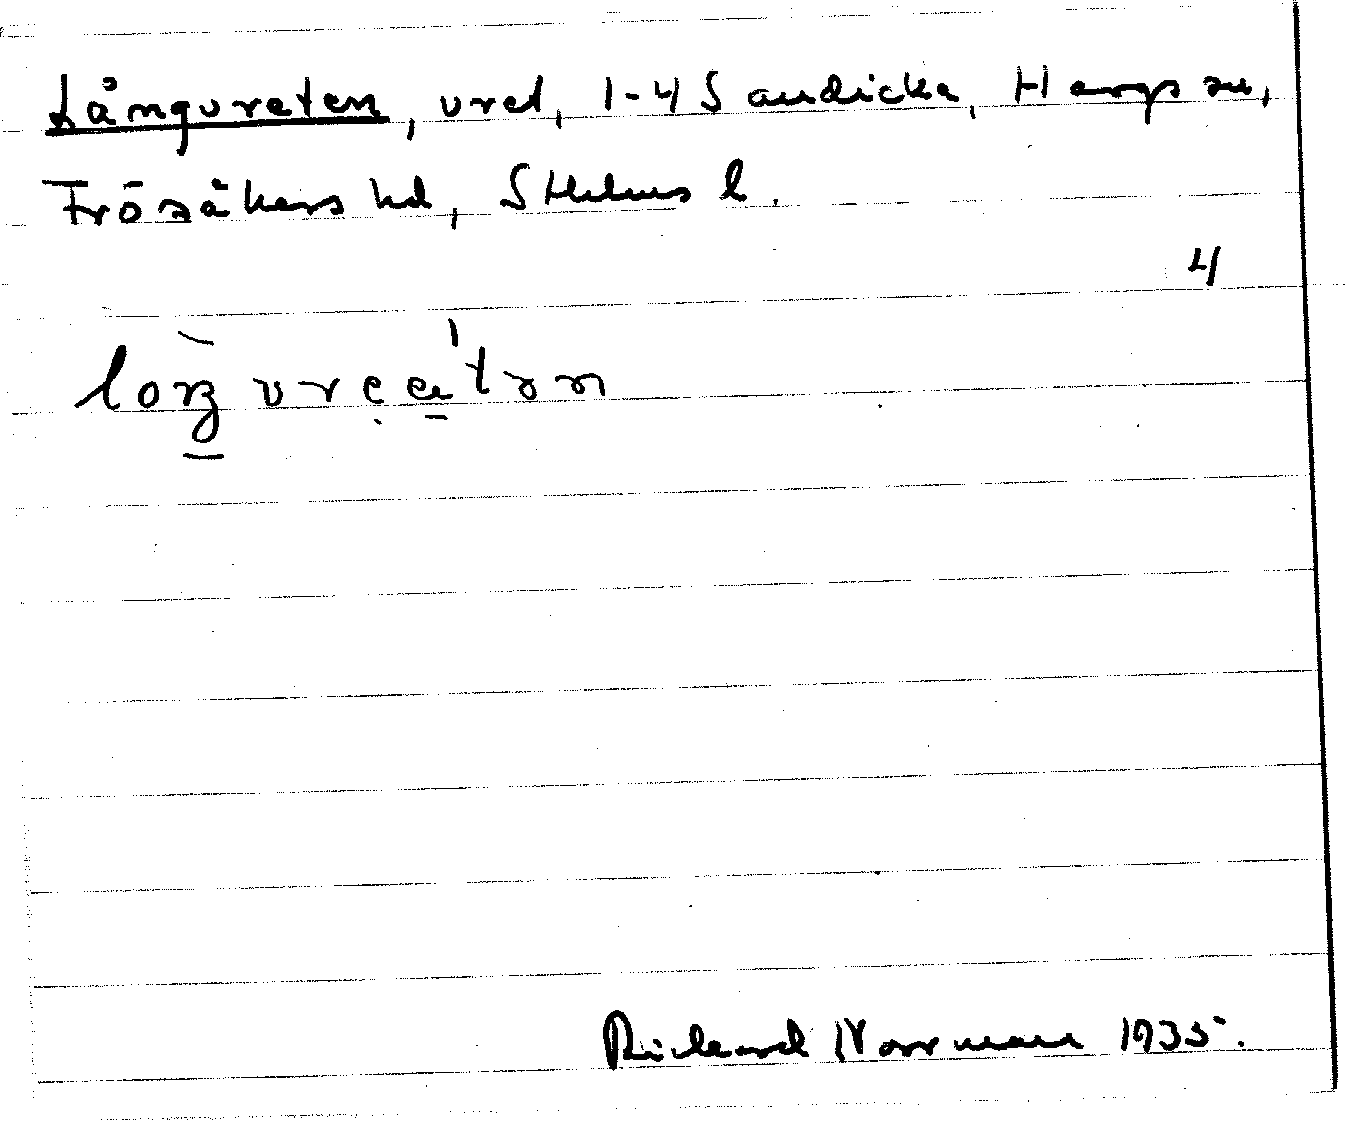 Långvreten, vret, 1-4 Sandicka, Hargs sn,
Frösåkers hd, Sthlms l.
4
Richard Norrman 1935.